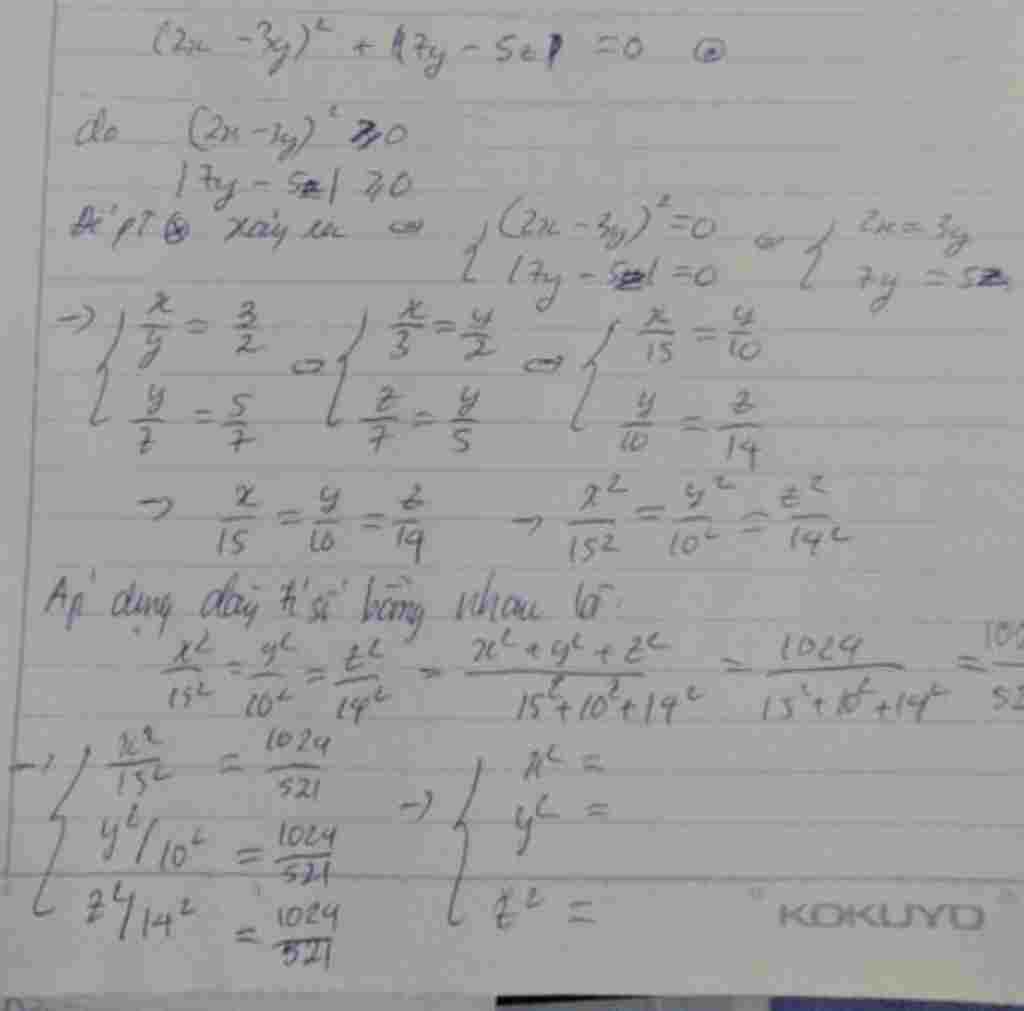 (2x - 3y)² + |7y - 5z| = 0 (*)
do (2x - 3y)² ≥ 0
|7y - 5z| ≥ 0
Để pT (*) xảy ra ⇔ { (2x - 3y)² = 0 ⇔ { 2x = 3y
|7y - 5z| = 0 7y = 5z
→ { x/y = 3/2 ⇔ { x/3 = y/2 ⇔ { x/15 = y/10
y/z = 5/7 z/7 = y/5 y/10 = z/14
→ x/15 = y/10 = z/14 → x²/15² = y²/10² = z²/14²
Áp dụng dãy tỉ số bằng nhau là:
x²/15² = y²/10² = z²/14² = (x² + y² + z²)/(15² + 10² + 14²) = 1024/(15² + 10² + 14²) =
→ { x²/15² = 1024/521 → { x² =
y²/10² = 1024/521 y² =
z²/14² = 1024/521 z² =
KOKUYO